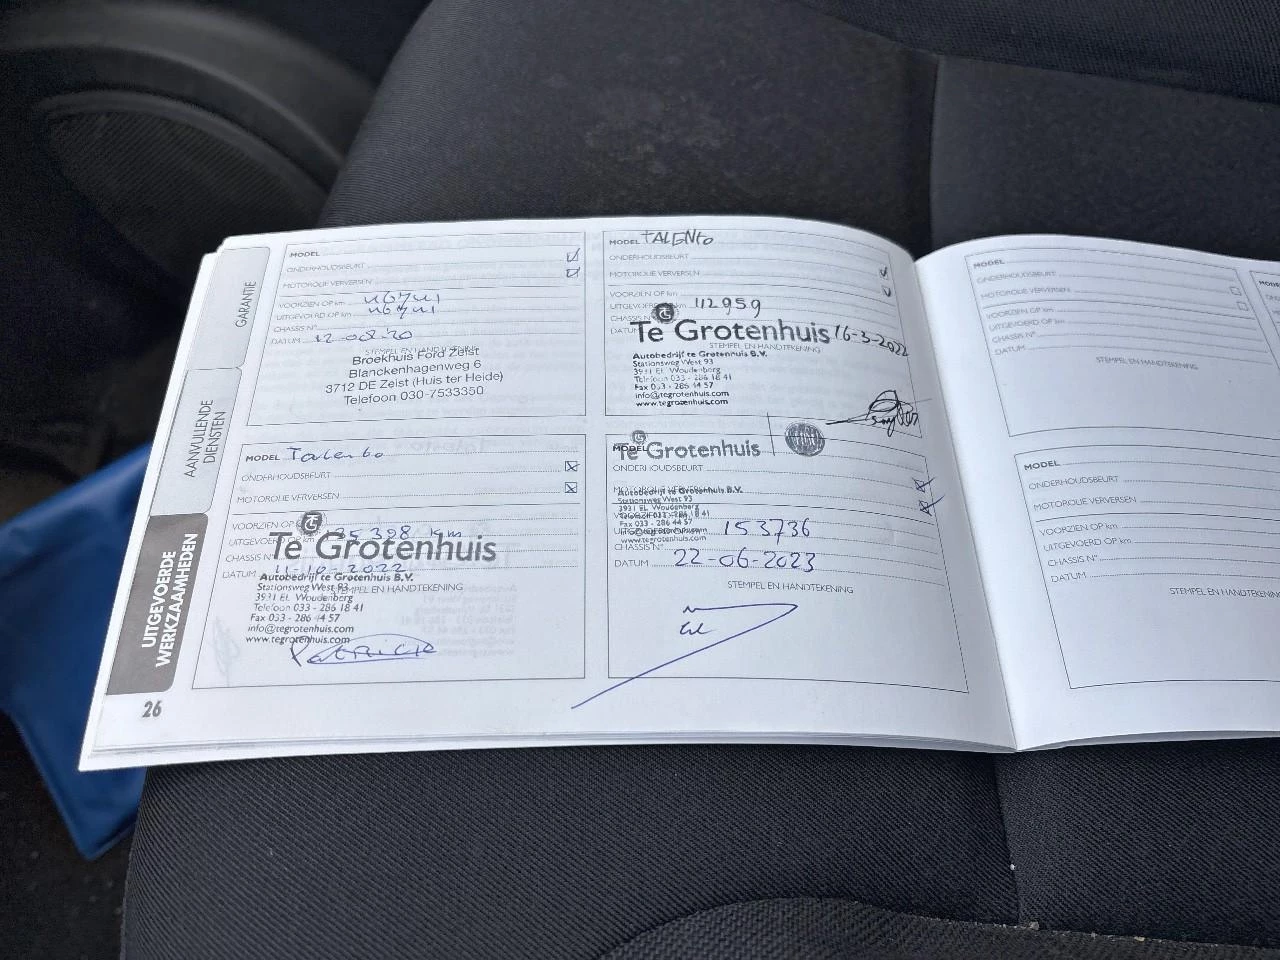 GARANTIE
AANVULLENDE
DIENSTEN
UITGEVOERDE
WERKZAAMHEDEN
26
MODEL
ONDERHOUDSBEURT
MOTOROLIE VERVERSEN
VOORZIEN OP km
UITGEVOERD OP km
CHASSIS N°
DATUM 12-08-20
STEMPEL EN HANDTEKENING
Broekhuis Ford Zeist
Blanckenhagenweg 6
3712 DE Zeist (Huis ter Heide)
Telefoon 030-7533350
MODEL TALENTO
ONDERHOUDSBEURT
MOTOROLIE VERVERSEN
VOORZIEN OP km
UITGEVOERD OP km 112959
CHASSIS N°
DATUM 16-3-2022
Te Grotenhuis
STEMPEL EN HANDTEKENING
Autobedrijf te Grotenhuis B.V.
Stationsweg West 93
3931 EL Woudenberg
Telefoon 033 - 286 18 41
Fax 033 - 286 44 57
info@tegrotenhuis.com
www.tegrotenhuis.com
MODEL Talento
ONDERHOUDSBEURT
MOTOROLIE VERVERSEN
VOORZIEN OP km
UITGEVOERD OP km
Te Grotenhuis
CHASSIS N°
DATUM 11-10-2022
Autobedrijf te Grotenhuis B.V.
STEMPEL EN HANDTEKENING
Stationsweg West 93
3931 EL Woudenberg
Telefoon 033 - 286 18 41
Fax 033 - 286 44 57
info@tegrotenhuis.com
www.tegrotenhuis.com
MODEL
Te Grotenhuis
ONDERHOUDSBEURT
MOTOROLIE VERVERSEN
Autobedrijf te Grotenhuis B.V.
Stationsweg West 93
3931 EL Woudenberg
VOORZIEN OP km
Telefoon 033 - 286 18 41
Fax 033 - 286 44 57
UITGEVOERD OP km 153736
www.tegrotenhuis.com
CHASSIS N°
DATUM 22-06-2023
STEMPEL EN HANDTEKENING
MODEL
ONDERHOUDSBEURT
MOTOROLIE VERVERSEN
VOORZIEN OP km
UITGEVOERD OP km
CHASSIS N°
DATUM
STEMPEL EN HANDTEKENING
MODEL
ONDERHOUDSBEURT
MOTOROLIE VERVERSEN
VOORZIEN OP km
UITGEVOERD OP km
CHASSIS N°
DATUM
STEMPEL EN HANDTEKENING